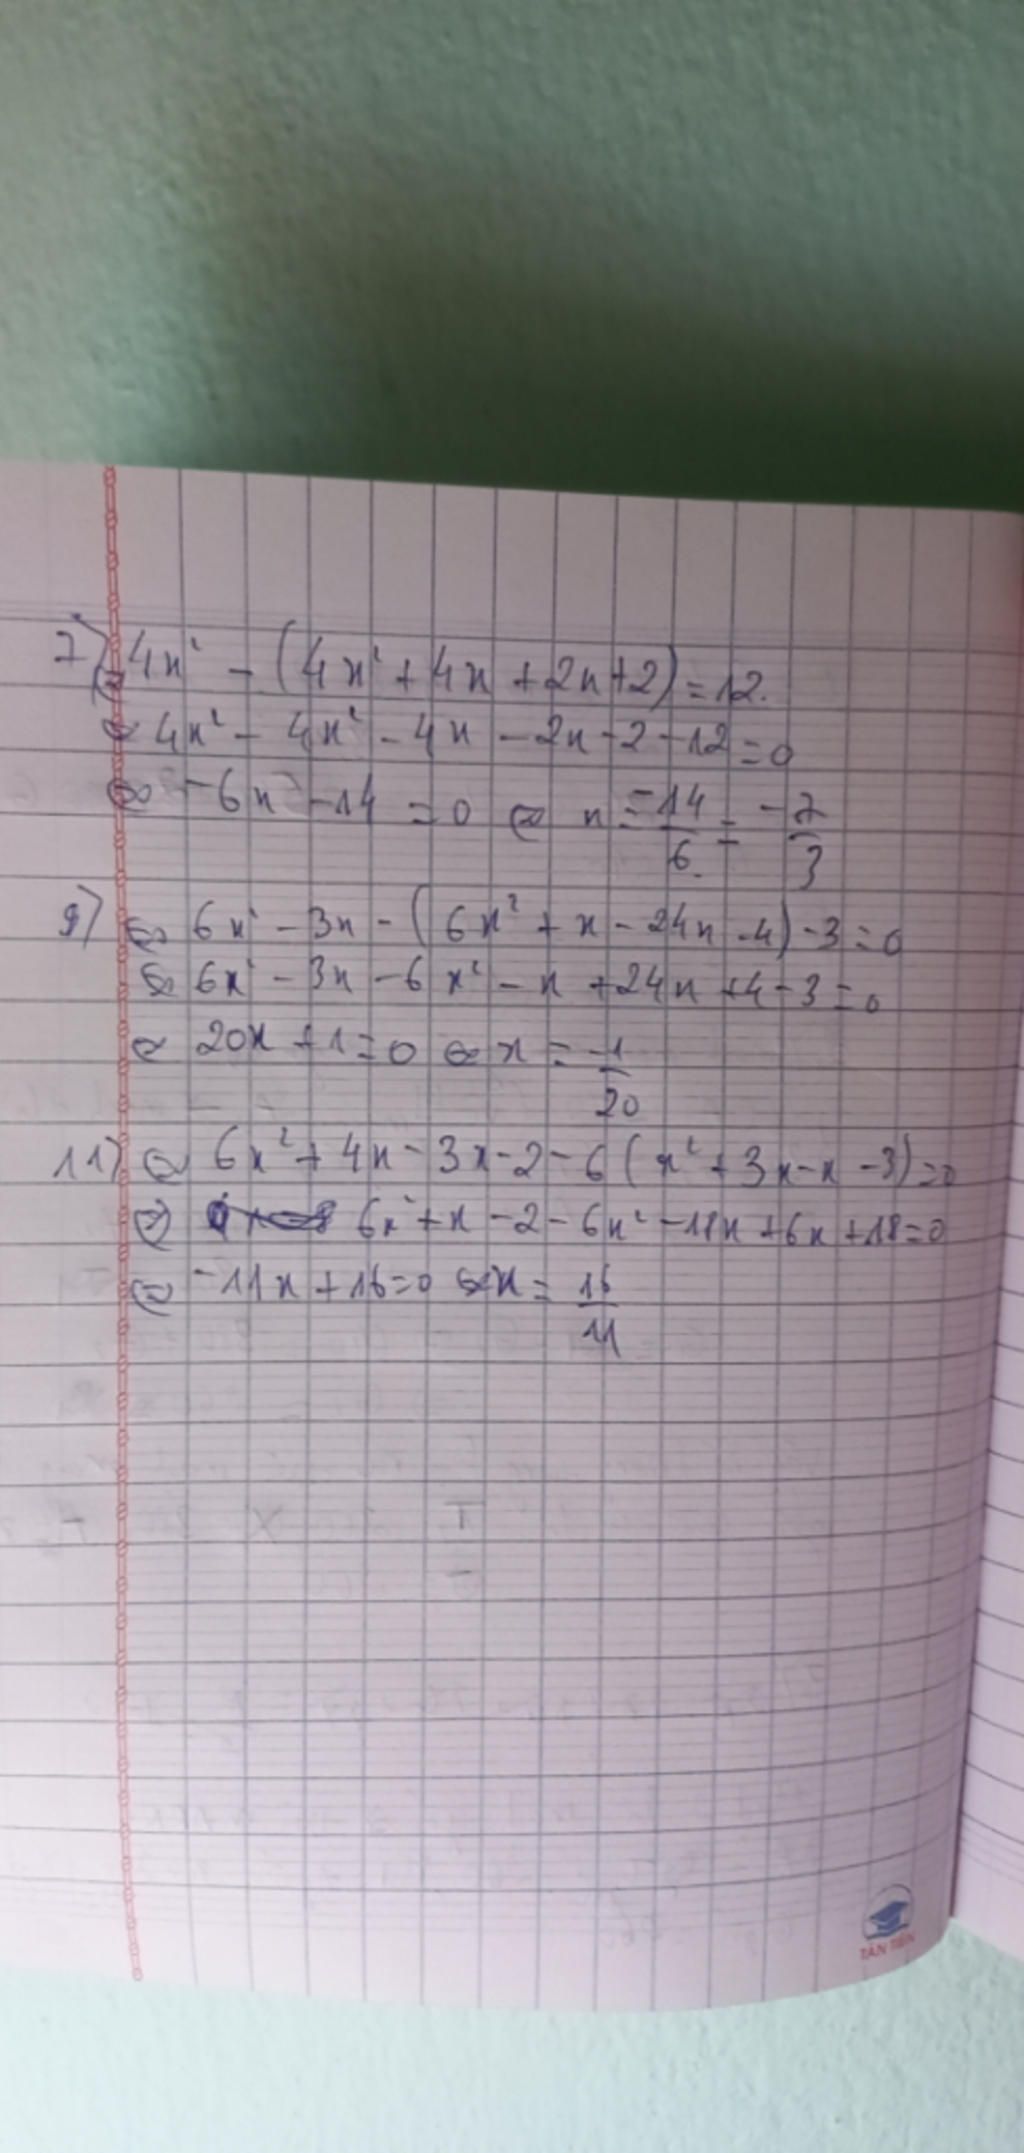 7) ⇔ 4x² - (4x² + 4x + 2x + 2) = 12.
⇔ 4x² - 4x² - 4x - 2x - 2 - 12 = 0
⇔ -6x - 14 = 0 ⇔ x = -14/6 = -7/3
9) ⇔ 6x² - 3x - (6x² + x - 24x - 4) - 3 = 0
⇔ 6x² - 3x - 6x² - x + 24x + 4 - 3 = 0
⇔ 20x + 1 = 0 ⇔ x = -1/20
11) ⇔ 6x² + 4x - 3x - 2 - 6(x² + 3x - x - 3) = 0
⇔ 6x² + x - 2 - 6x² - 18x + 6x + 18 = 0
⇔ -11x + 16 = 0 ⇔ x = 16/11
TÂN TIẾN